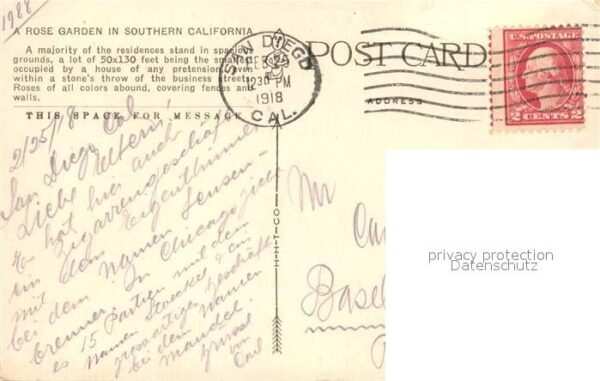 1988
A ROSE GARDEN IN SOUTHERN CALIFORNIA
A majority of the residences stand in spacious
grounds, a lot of 50x130 feet being the smallest
occupied by a house of any pretension even
within a stone's throw of the business streets.
Roses of all colors abound, covering fences and
walls.
THIS SPACE FOR MESSAGE
POST CARD
ADDRESS
SAN DIEGO
FEB
1230 PM
1918
CAL.
U.S. POSTAGE
2 CENTS 2
H-H-T-CO.
2/25/18
San Diego Cal
Liebe Eltern!
hat hier auch
ein Zigarrengeschäft
mit dem Eigenthümer
bei dem Namen Sensen-
brenner. In Chicago
es 15 Partien mit dem
Namen Stoeckel & ein
grossartiges Geschäft
bei dem Namen
Mandel.
Grüsse
von
Carl
Mr
Basel
privacy protection
Datenschutz